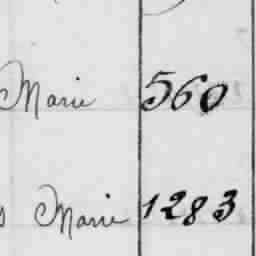 Marie 560
Marie 1283